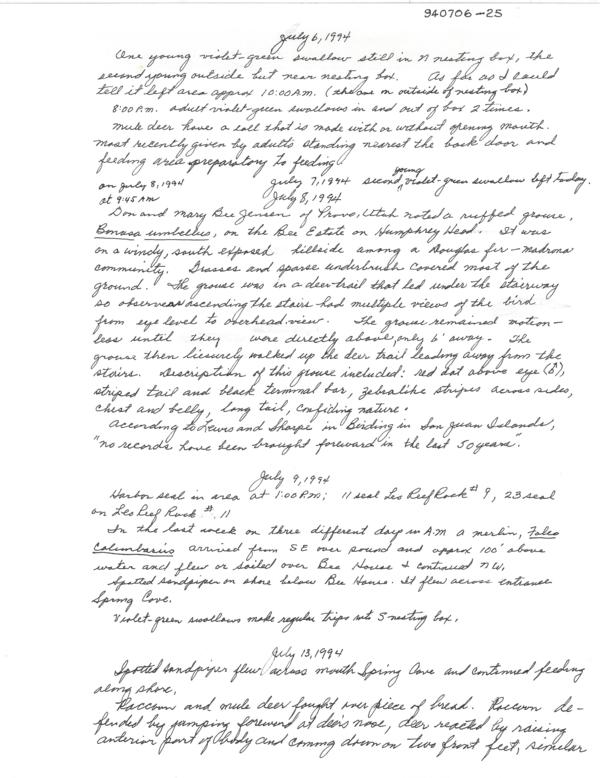 940706-25
July 6, 1994
One young violet-green swallow still in N nesting box, the
second young outside but near nesting box. As far as I could
tell it left area approx 10:00 A.M. (the one on outside of nesting box)
8:00 P.M. adult violet-green swallows in and out of box 2 times.
Mule deer have a call that is made with or without opening mouth.
Most recently given by adults standing nearest the back door and
feeding area preparatory to feeding.
on July 8, 1994
at 9:45 AM
July 7, 1994 second young violet-green swallow left today.
July 8, 1994
Don and Mary Bee Jensen of Provo, Utah noted a ruffed grouse,
Bonasa umbellus, on the Bee Estate on Humphrey Head. It was
on a windy, south exposed hillside among a Douglas fir - madrona
community. Grasses and sparse underbrush covered most of the
ground. The grouse was in a deer trail that led under the stairway
so observers ascending the stairs had multiple views of the bird
from eye level to overhead view. The grouse remained motion-
less until they were directly above, only 6' away. The
grouse then liesurely walked up the deer trail leading away from the
stairs. Description of this grouse included: red dot above eye (♂),
striped tail and black terminal bar, zebralike stripes across sides,
chest and belly, long tail, confiding nature.
According to Lewis and Sharpe in Birding in San Juan Islands,
"no records have been brought foreward in the last 50 years".
July 9, 1994
Harbor seal in area at 1:00 P.M; 11 seal Leo Reef Rock # 9, 23 seal
on Leo Reef Rock # 11
In the last week on three different days in A.M a merlin, Falco
columbarius arrived from SE over sound and approx 100' above
water and flew or sailed over Bee House & continued NW.
Spotted sandpiper on shore below Bee House. It flew across entrance
Spring Cove.
Violet-green swallows make regular trips into S nesting box.
July 13, 1994
Spotted sandpiper flew across mouth Spring Cove and continued feeding
along shore.
Raccoon and mule deer fought over piece of bread. Raccoon de-
fended by jumping foreward at deer's nose, deer reacted by raising
anterior part of body and coming down on two front feet, similar